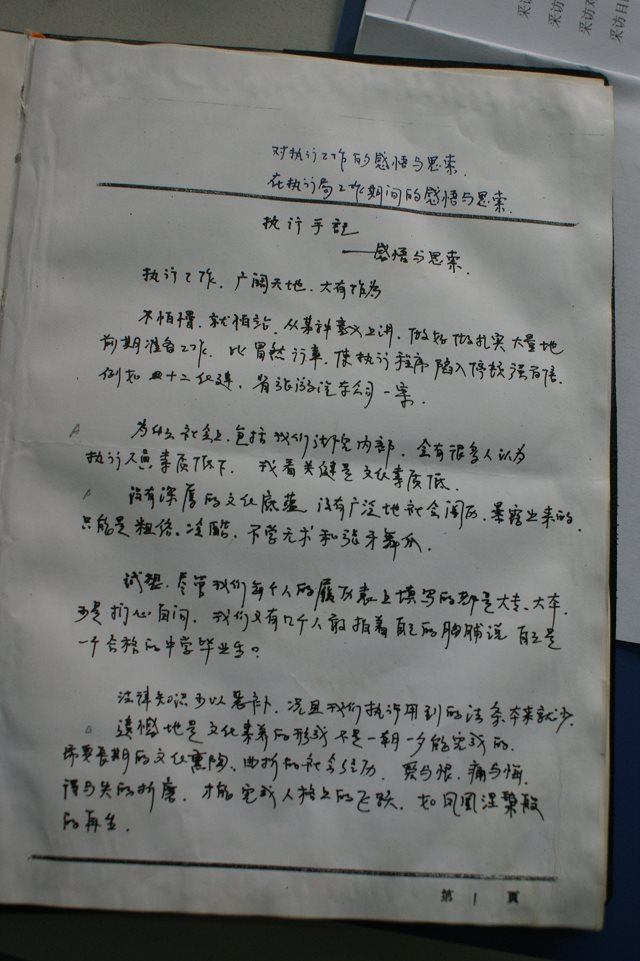 采访
采访对
采访日
对执行工作的感悟与思索.
在执行局工作期间的感悟与思索.
执行手记
——感悟与思索.
执行工作,广阔天地,大有作为
不怕慢,就怕站,从某种意义上讲,做好做扎实大量地
前期准备工作,比冒然行事,使执行程序陷入停顿强百倍.
例如四十二, 汽车公司一案.
为什么社会上,包括我们法院内部,会有很多人认为
执行人员素质低下.我看关健是文化素质低.
没有深厚的文化底蕴,没有广泛地社会阅历,暴露出来的
只能是粗俗、冷酷、不学无术和张牙舞爪.
试想,尽管我们每个人的履历表上填写的都是大专、大本,
可是扪心自问,我们又有几个人敢拍着自己的胸脯说自己是
一个合格的中学毕业生?
法律知识可以恶补,况且我们执行用到的法条本来就少.
遗憾地是文化素养的形成不是一朝一夕能完成的.
需要长期的文化熏陶、曲折的社会经历,爱与恨,痛与悔,
得与失的折磨,才能完成人格上的飞跃,如凤凰涅槃般
的再生.
第 1 页